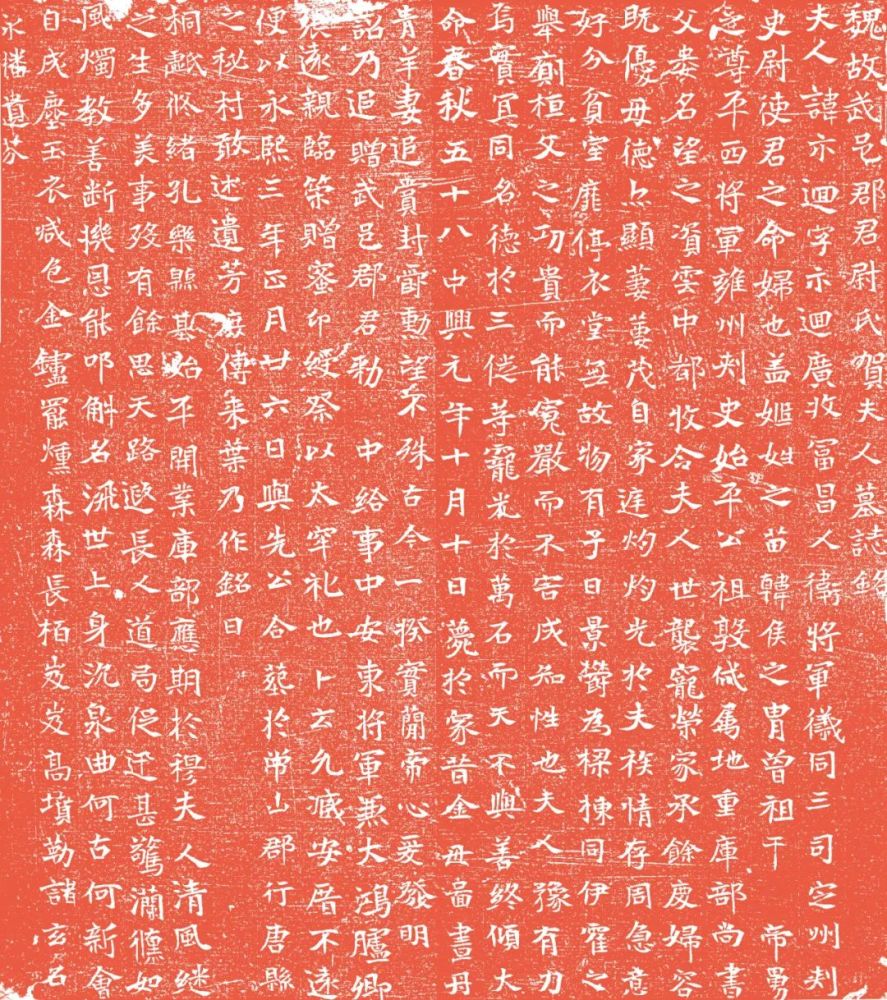 魏故武邑郡君尉氏賀夫人墓誌銘
夫人諱示迴字示迴廣牧富昌人衛將軍儀同三司定州刺
史尉使君之命婦也盖姬姓之苗韓侯之胄曾祖干帝舅
之尊平西將軍雍州刺史始平公祖敦咸屬地重庫部尚書
父婁名望之資雲中鄀牧合夫人世襲寵榮家承餘慶婦容
既優毋德亦顯萋萋茂自家庭灼灼光於夫族情存周急意
好分貧室靡停衣堂無故物有子日景鬱為樑棟同伊霍之
舉劘桓文之功貴而能寬嚴而不害成知性也夫人豫有力
焉實宜同名德於三徙等寵光於萬石而天不與善終傾大
命春秋五十八中興元年十月十日薨於家昔金毋啚晝丹
青羊妻追賫封爵勳望不殊古今一揆實蕳帝心爰發明
詔乃追贈武邑郡君勑中給事中安東將軍兼大鴻臚卿
侯遠親臨策贈蜜印綬祭以太牢礼也卜云允臧安厝不遠
便以永熙三年正月廿六日與先公合葬於常山郡行唐縣
之秘村敢述遺芳庶傳来葉乃作銘曰
桐䟽脩緒孔樂縣基始平開業庫部應期於穆夫人清風继
之生多美事歿有餘思天路遐長人道局促迁甚驚瀾儵如
風燭教善断機恩能叩觓名流世上身沉泉曲何古何新會
自成塵玉衣咸色金鑪罷燻森森長栢岌岌高墳勒諸玄石
永播遺芬